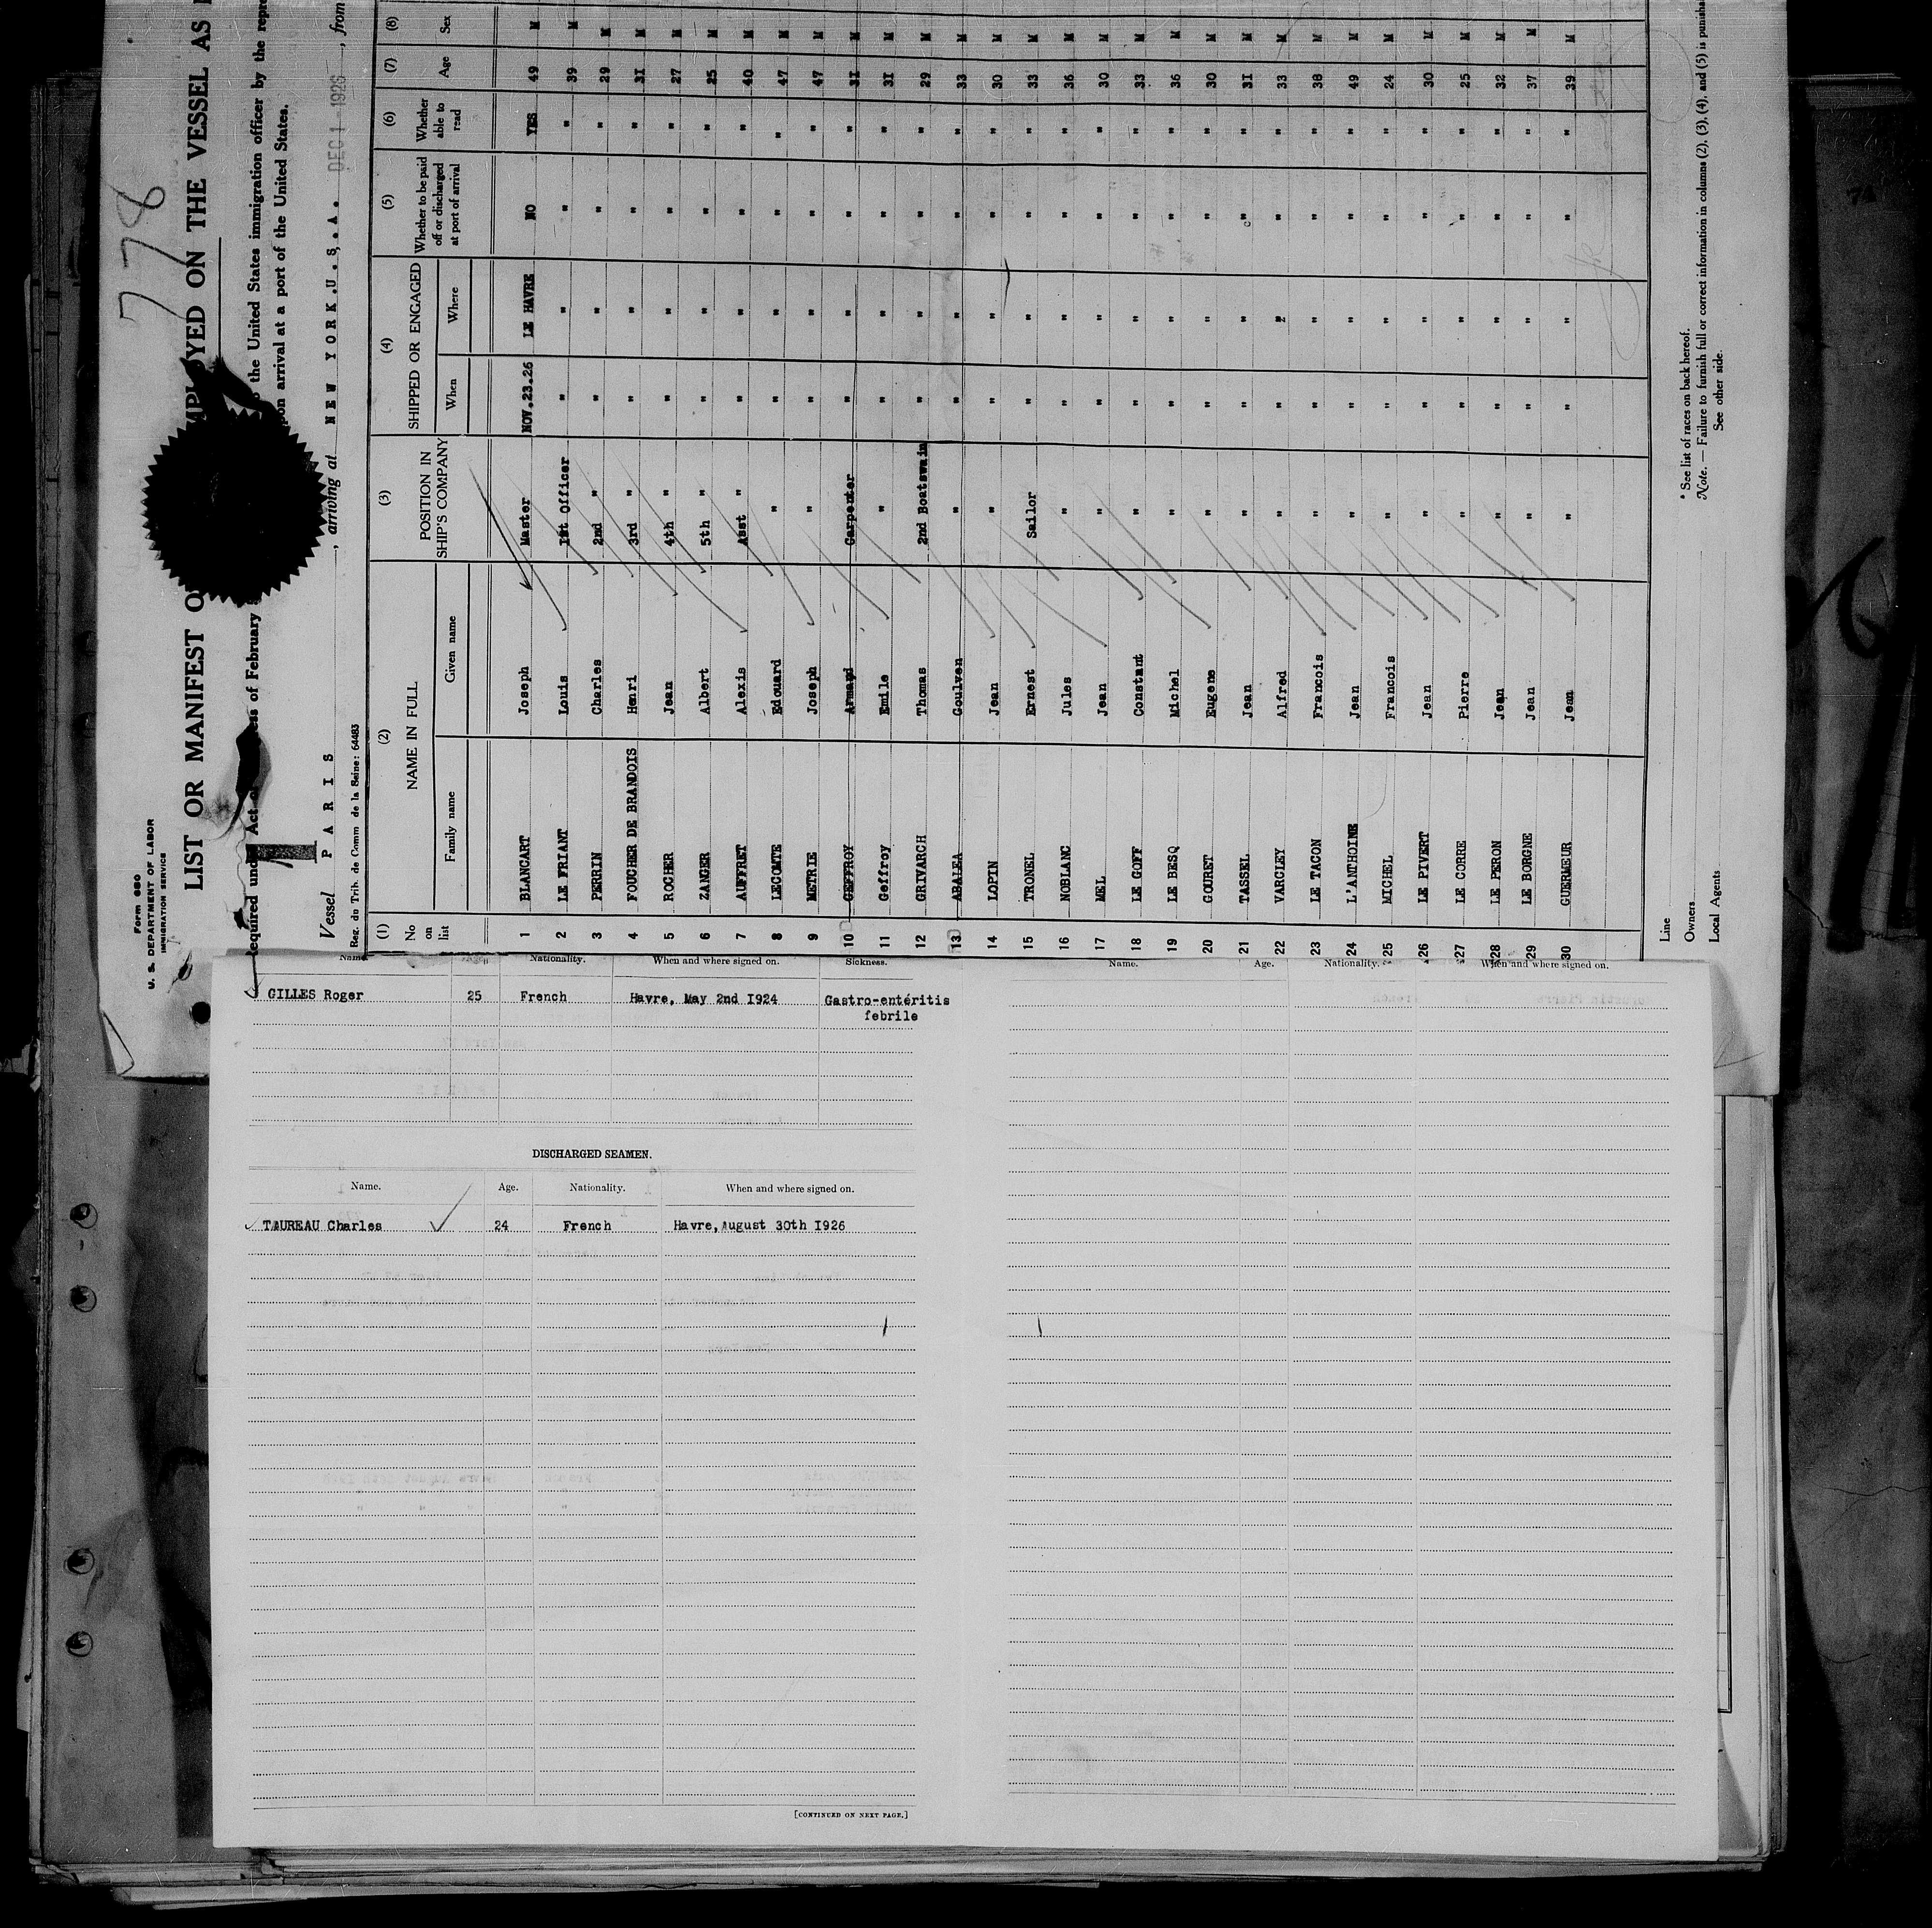 778
Form 680
U. S. DEPARTMENT OF LABOR
IMMIGRATION SERVICE
LIST OR MANIFEST OF EMPLOYED ON THE VESSEL AS
Required under Act of February the United States immigration officer by the
upon arrival at a port of the United States.
1
Vessel PARIS, arriving at NEW YORK.U.S.A. DEC 1 1926, from
Reg. du Trib. de Comm de la Seine: 64483
(1) (2) (3) (4) (5) (6) (7) (8)
No on list NAME IN FULL POSITION IN SHIP'S COMPANY SHIPPED OR ENGAGED Whether to be paid off or discharged at port of arrival Whether able to read Age Sex
Family name Given name When Where
1 BLANCART Joseph Master NOV.23.26 LE HAVRE NO YES 49 M
2 LE FRIANT Louis 1st Officer " " " " 39 M
3 PERRIN Charles 2nd " " " " " 29 M
4 FOUCHER DE BRANDOIS Henri 3rd " " " " " 31 M
5 ROCHER Jean 4th " " " " " 27 M
6 ZANGER Albert 5th " " " " " 25 M
7 AUFFRET Alexis Asst " " " " " 40 M
8 LECOMTE Edouard " " " " " 47 M
9 METRIE Joseph " " " " " 47 M
10 GEFFROY Armand Carpenter " " " " 31 M
11 Geffroy Emile " " " " " 31 M
12 GRIVARCH Thomas 2nd Boatswain " " " " 29 M
13 ABALEA Goulven " " " " " 33 M
14 LOPIN Jean " " " " " 30 M
15 TRONEL Ernest Sailor " " " " 33 M
16 NOBLANC Jules " " " " " 36 M
17 MEL Jean " " " " " 30 M
18 LE GOFF Constant " " " " " 33 M
19 LE BESQ Michel " " " " " 36 M
20 GOURET Eugene " " " " " 30 M
21 TASSEL Jean " " " " " 31 M
22 VARCLEY Alfred " " " " " 33 M
23 LE TACON Francois " " " " " 38 M
24 L'ANTHOINE Jean " " " " " 49 M
25 MICHEL Francois " " " " " 24 M
26 LE PIVERT Jean " " " " " 30 M
27 LE CORRE Pierre " " " " " 25 M
28 LE PERON Jean " " " " " 32 M
29 LE BORGNE Jean " " " " " 37 M
30 GUERMEUR Jean " " " " " 39 M
Line
Owners
Local Agents
* See list of races on back hereof.
Note. — Failure to furnish full or correct information in columns (2), (3), (4), and (5) is
See other side.
Name. Nationality. When and where signed on. Sickness.
GILLES Roger 25 French Havre, May 2nd I924 Gastro-entéritis
febrile
DISCHARGED SEAMEN.
Name. Age. Nationality. When and where signed on.
TAUREAU Charles 24 French Havre,August 30th I926
[CONTINUED ON NEXT PAGE.]
Name. Age. Nationality. When and where signed on.